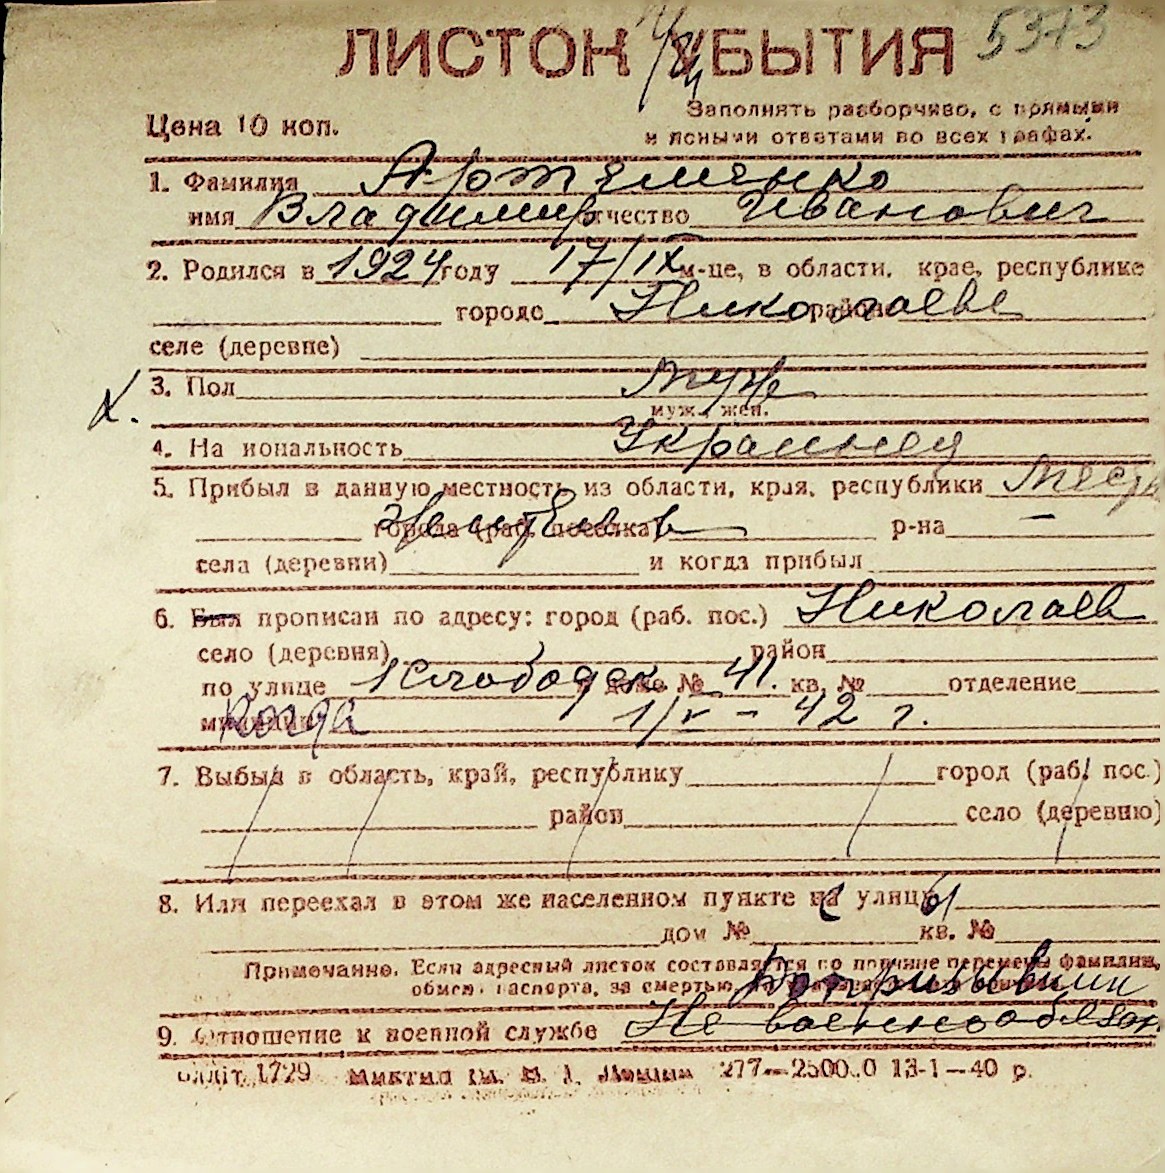 ЛИСТОК УБЫТИЯ 5373
Заполнять разборчиво, с прямыми
Цена 10 коп.
и ясными ответами во всех графах.
1. Фамилия Артёменко
имя Владимир отчество Иванович
2. Родился в 1924 году 17/IX м-це, в области, крае, республике
городе Николаеве районе
селе (деревне)
3. Пол муж
муж., жен.
4. Национальность Украинец
5. Прибыл в данную местность из области, края, республики
города (раб. поселка) р-на –
села (деревни) и когда прибыл
6. Был прописан по адресу: город (раб. пос.) Николаев
село (деревня) район
по улице 1 Слободск. дом № 41. кв. № отделение
милиции когда 1/V – 42 г.
7. Выбыл в область, край, республику город (раб. пос.)
район село (деревню)
8. Или переехал в этом же населенном пункте на улицу
дом № кв. №
Примечание. Если адресный листок составляется по причине перемены фамилии,
обмен паспорта, за смертью,
9. Отношение к военной службе Не военнообязан
1729 277—25000 13-1—40 р.